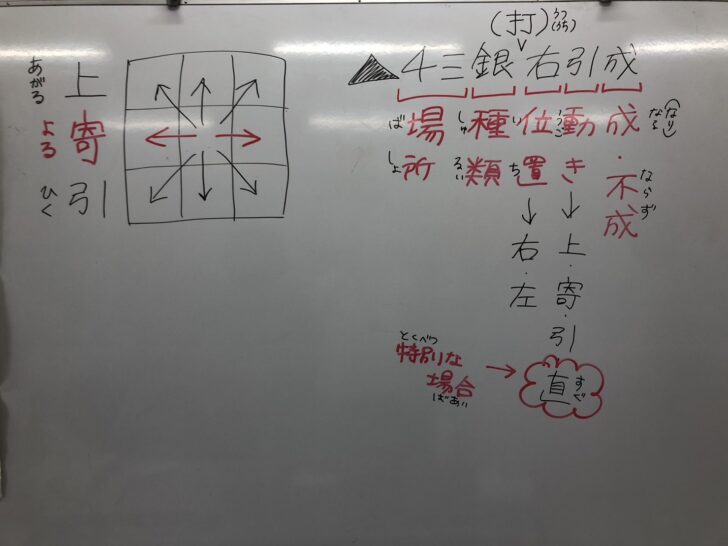 上 あがる
寄 よる
引 ひく
(打) うつ(うち)
▲4三銀右引成
場所 ばしょ
種類 しゅるい
位置 いち
動き うごき
成・不成 なる(なり) ならず
↓ 右・左
↓ 上・寄・引
直 すぐ
特別な とくべつ
場合 ばあい
→